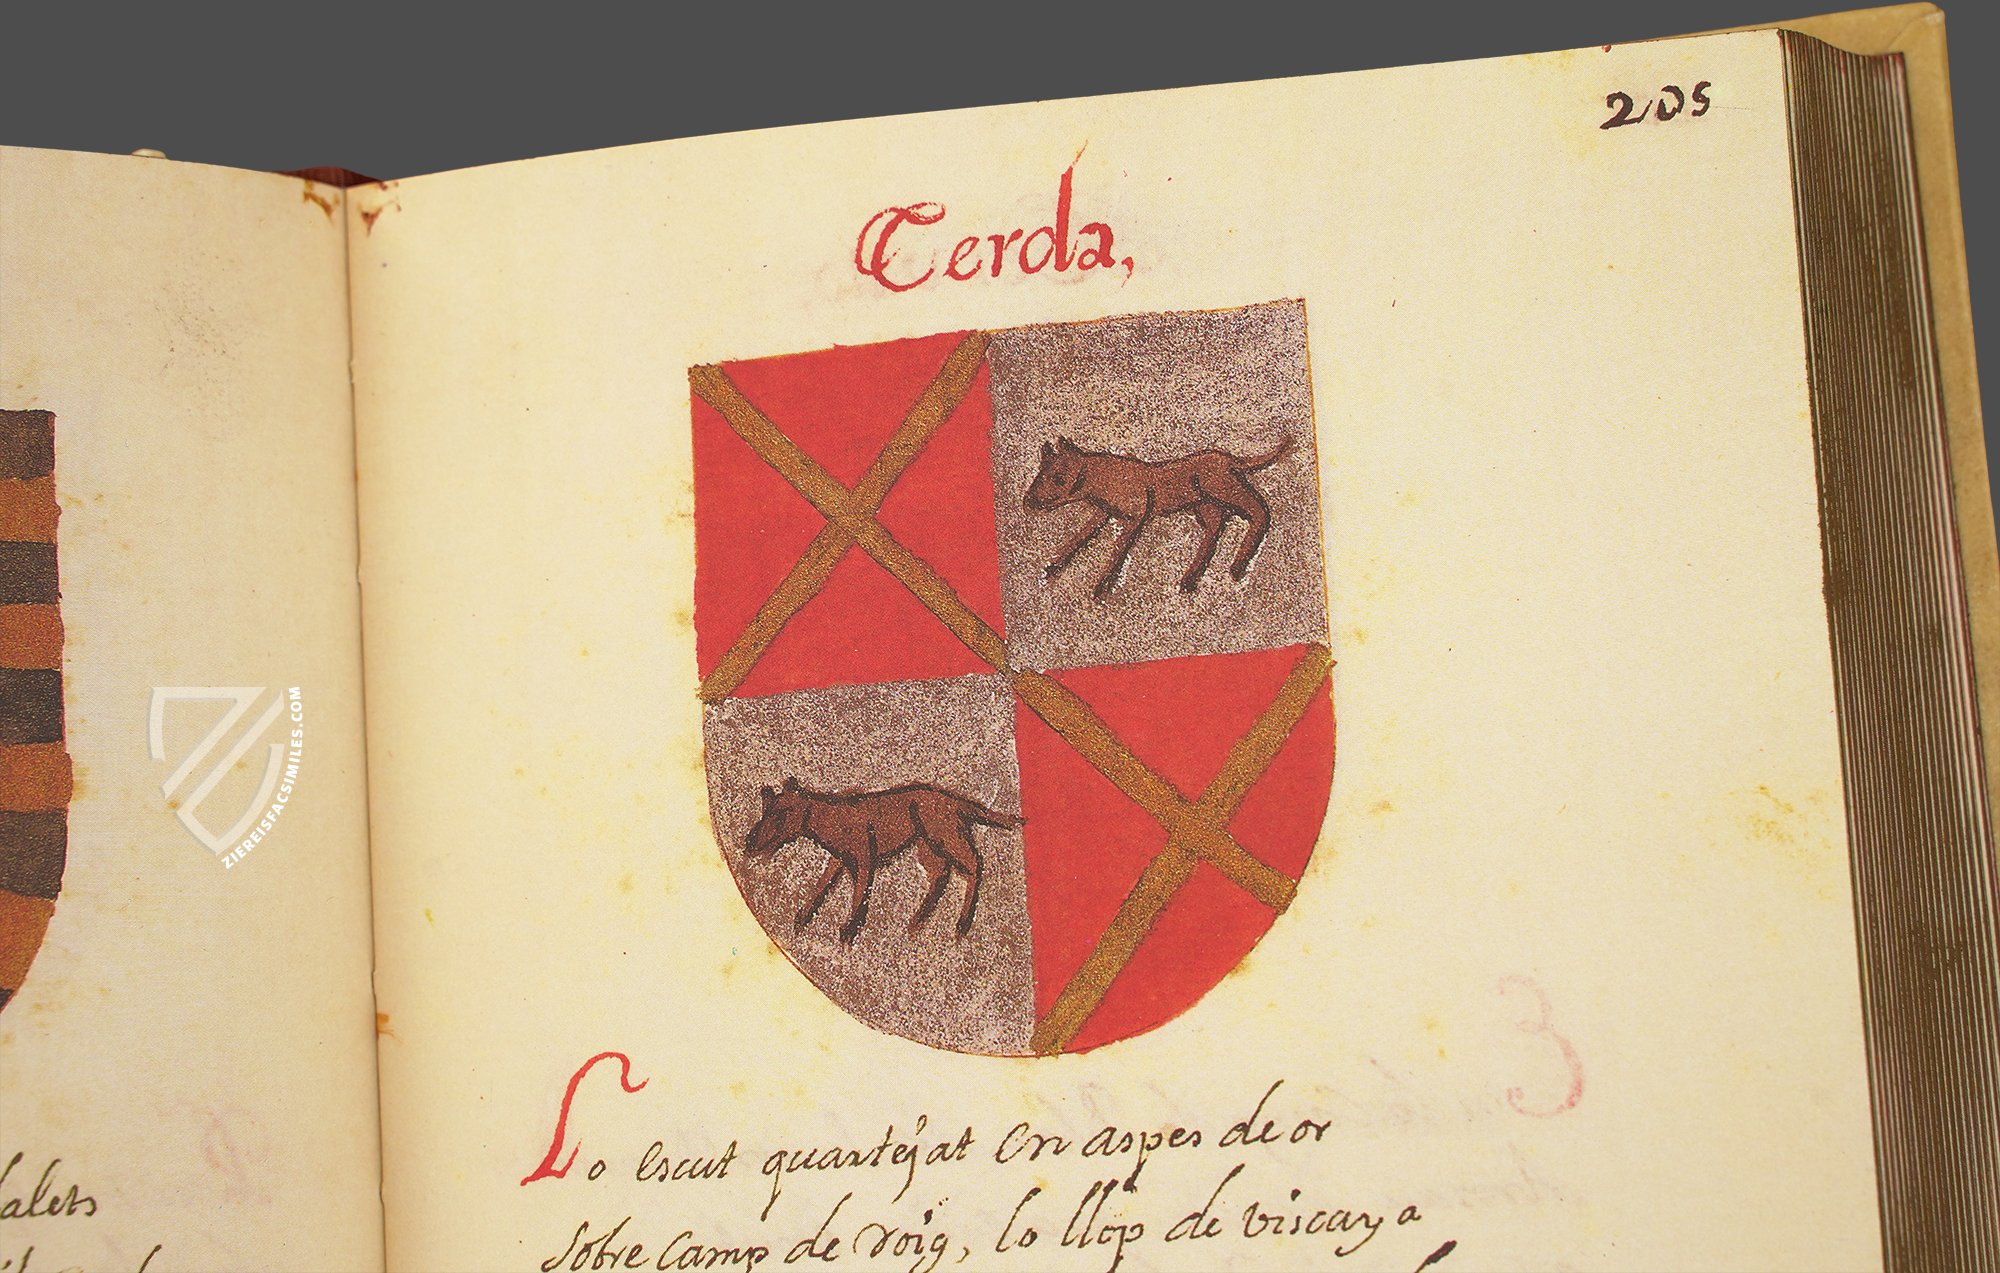 205
Cerda,
Lo escut quartejat en aspes de or
sobre camp de roig, lo llop de viscaya
alets
ZIEREISFACSIMILES.COM